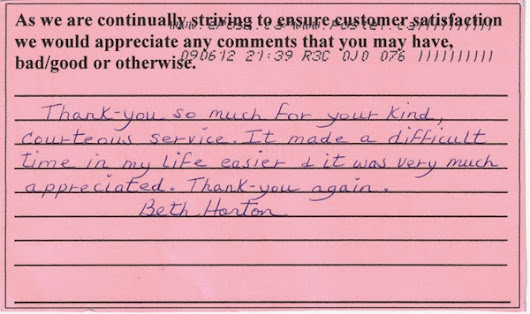 As we are continually striving to ensure customer satisfaction
www.epost.ca www.poster.ca
we would appreciate any comments that you may have,
090612 21:39 R3C 0J0 076
bad/good or otherwise.
Thank-you so much for your kind,
courteous service. It made a difficult
time in my life easier & it was very much
appreciated. Thank-you again.
Beth Horton